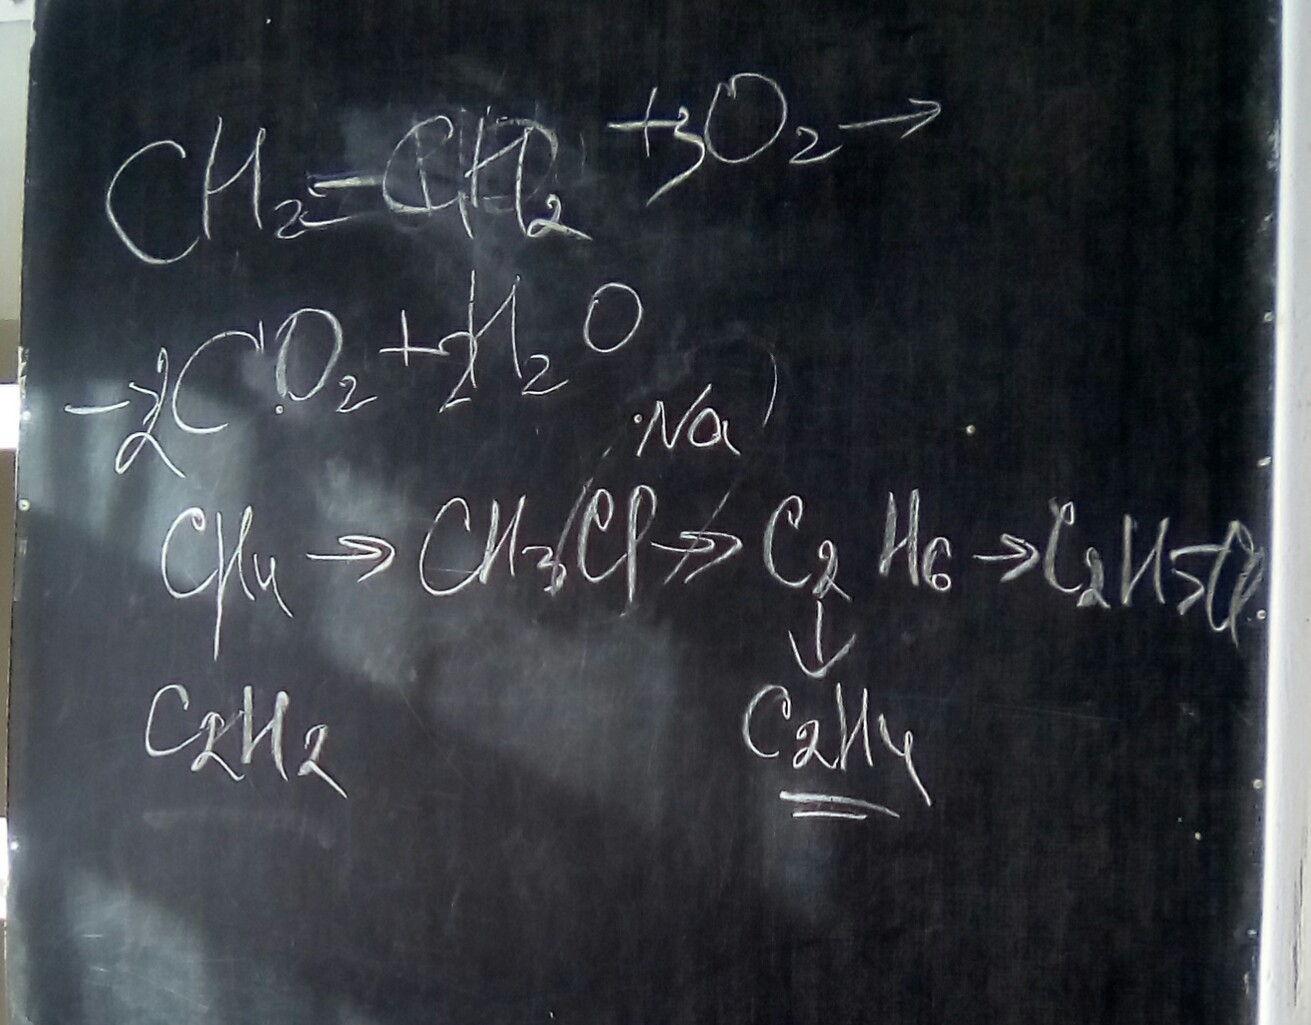 CH2=CH2 +3O2→
→2CO2+2H2O
Na
CH4→CH3Cl→C2H6→C2H5Cl
↓
C2H2 C2H4